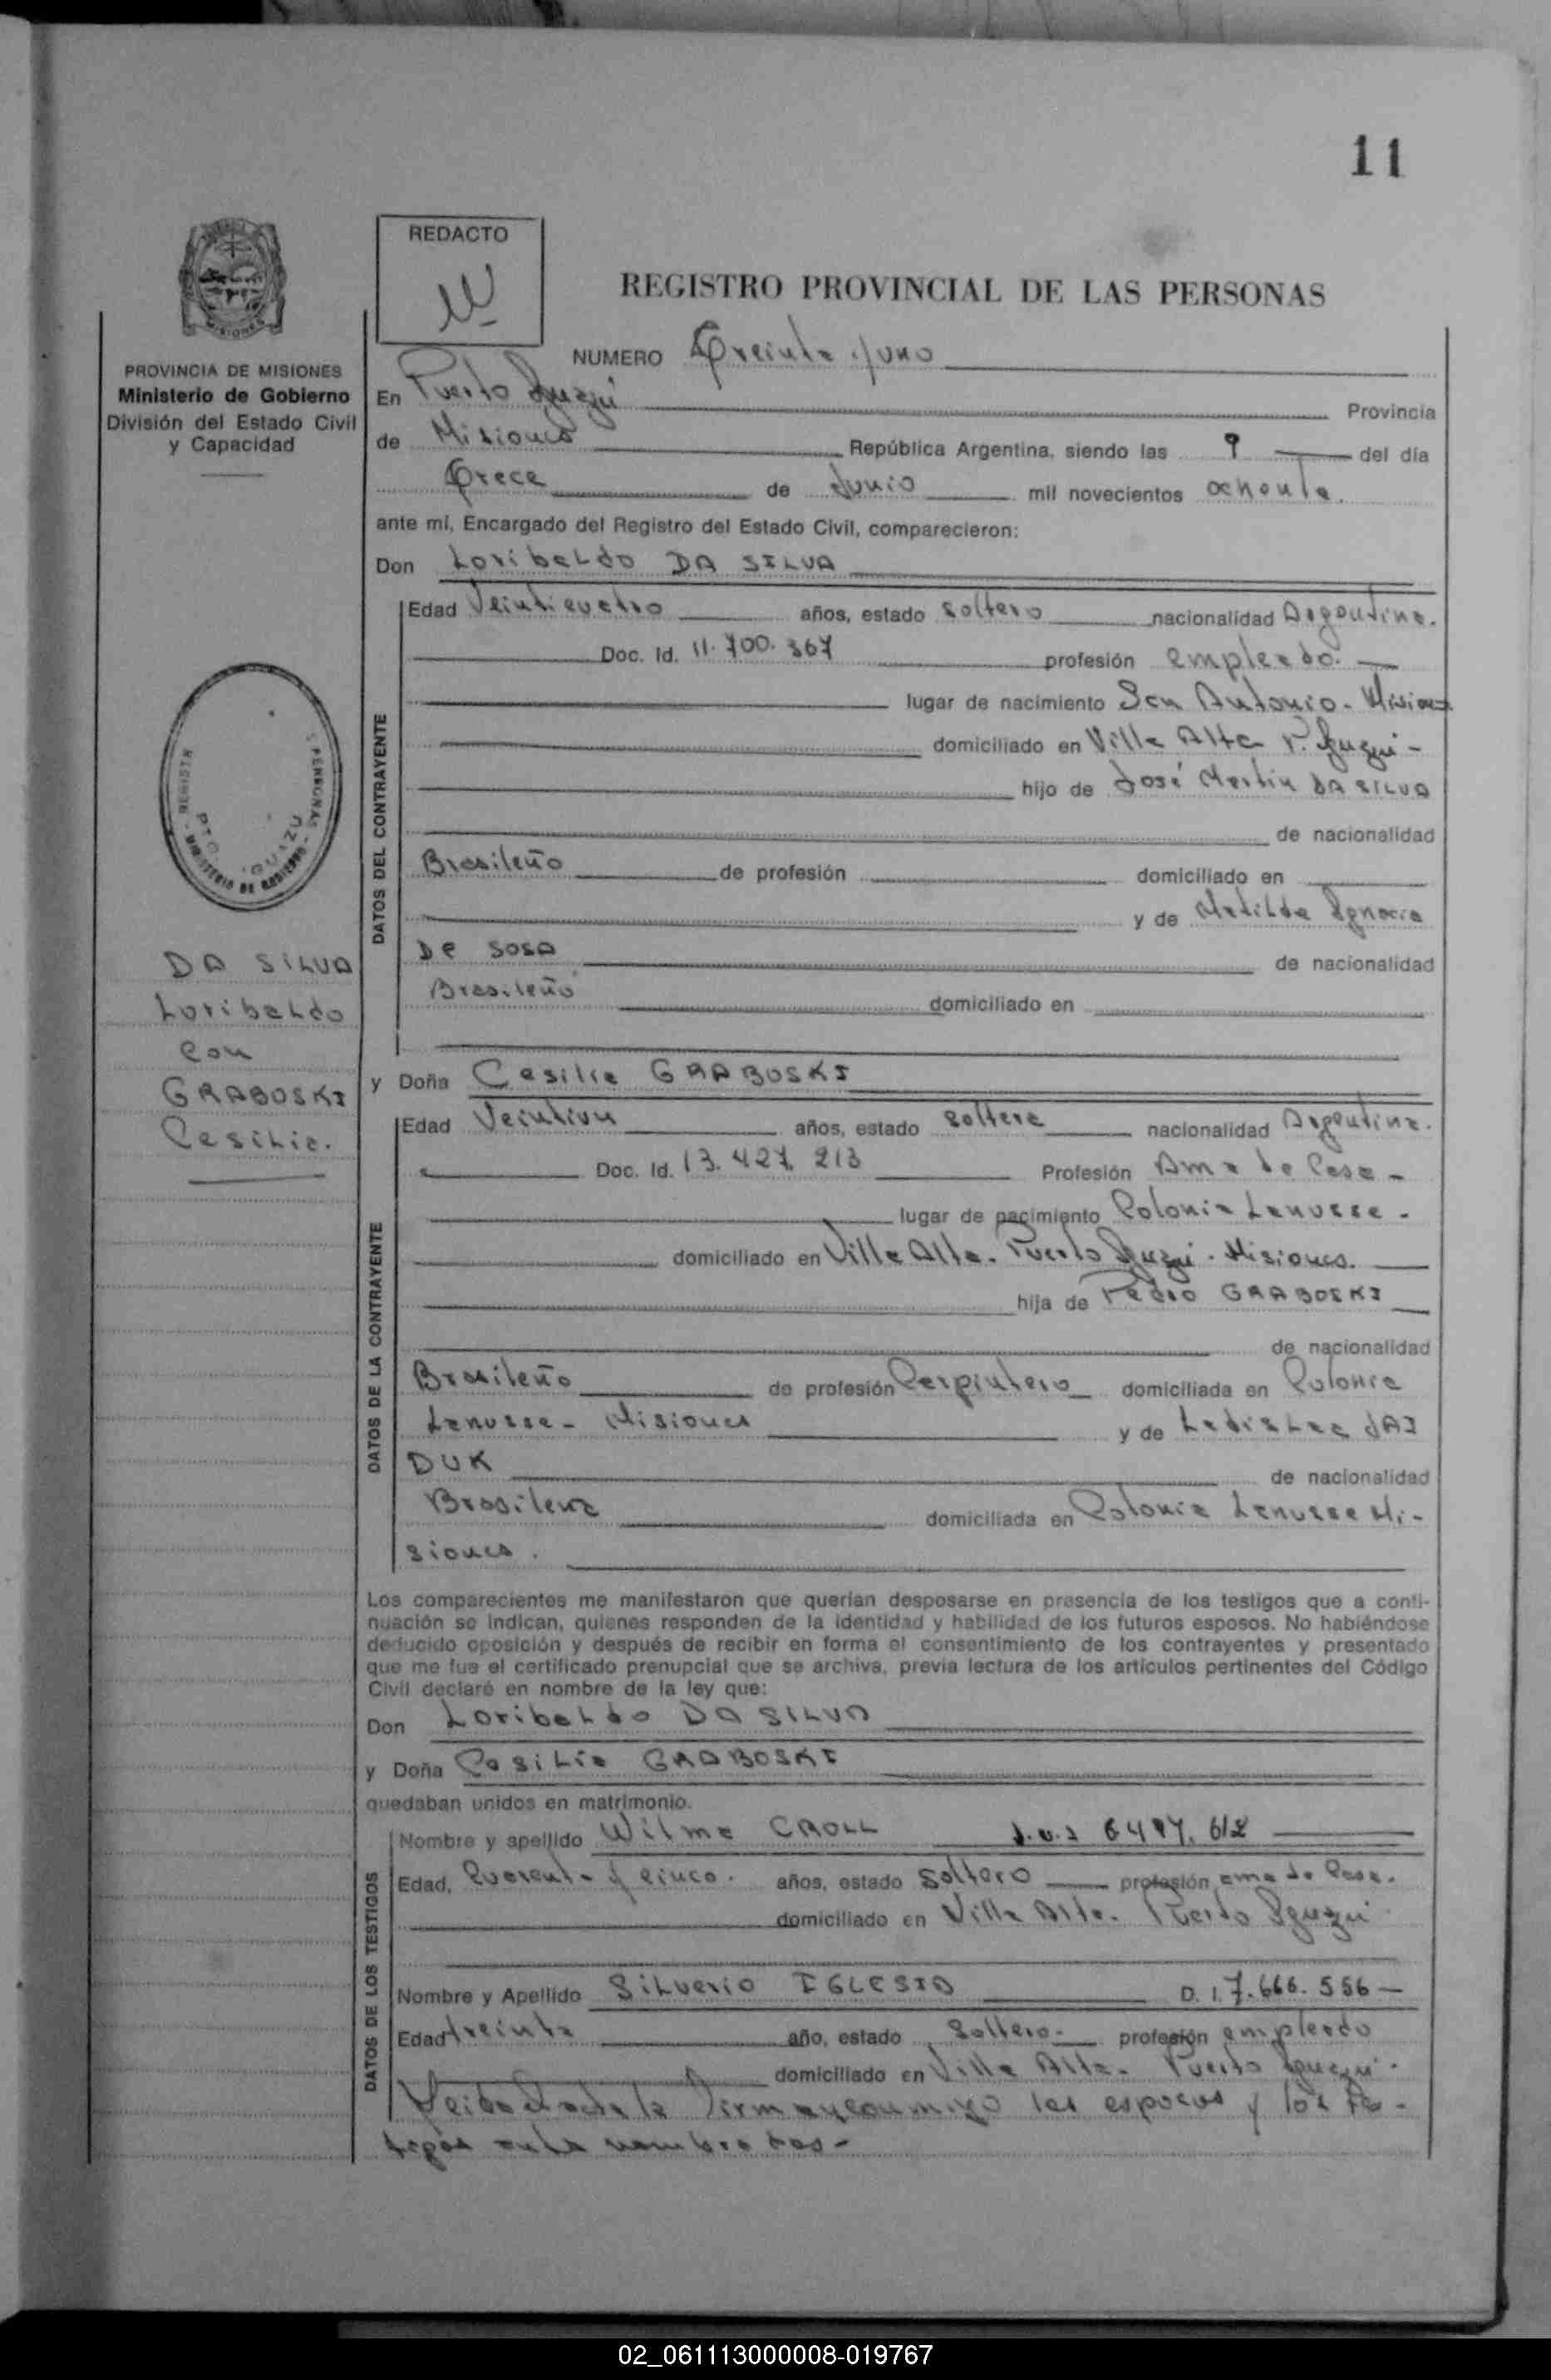 11
REDACTO
REGISTRO PROVINCIAL DE LAS PERSONAS
NUMERO Treinta y uno
PROVINCIA DE MISIONES
Ministerio de Gobierno
División del Estado Civil
y Capacidad
En Puerto Iguazú Provincia
de Misiones República Argentina, siendo las 9 del día
Trece de Junio mil novecientos ochenta.
ante mí, Encargado del Registro del Estado Civil, comparecieron:
Don Loribaldo DA SILVA
DATOS DEL CONTRAYENTE
Edad Veinticuatro años, estado soltero nacionalidad Argentina.
Doc. Id. 11.700.367 profesión empleado.
lugar de nacimiento San Antonio - Misiones
domiciliado en Villa Alta P. Iguazú -
hijo de José Martin DA SILVA
de nacionalidad
Brasileño de profesión domiciliado en
y de Matilde Ignacia
De SOSA de nacionalidad
Brasileño domiciliado en
DA SILVA
Loribaldo
con
GRABOSKI
Cesilia.
y Doña Cesilia GRABOSKI
DATOS DE LA CONTRAYENTE
Edad Veintiun años, estado soltera nacionalidad Argentina.
Doc. Id. 13.427.213 Profesión Ama de Casa -
lugar de nacimiento Colonia Lanusse -
domiciliado en Villa Alta. Puerto Iguazú. Misiones.
hija de Pedro GRABOSKI
de nacionalidad
Brasileño de profesión Carpintero domiciliada en Colonia
Lanusse - Misiones y de Ladislaa JAI
DUK de nacionalidad
Brasilera domiciliada en Colonia Lanusse Mi-
siones.
Los comparecientes me manifestaron que querían desposarse en presencia de los testigos que a conti-
nuación se indican, quienes responden de la identidad y habilidad de los futuros esposos. No habiéndose
deducido oposición y después de recibir en forma el consentimiento de los contrayentes y presentado
que me fue el certificado prenupcial que se archiva, previa lectura de los artículos pertinentes del Código
Civil declaré en nombre de la ley que:
Don Loribaldo DA SILVA
y Doña Cesilia GRABOSKI
quedaban unidos en matrimonio.
DATOS DE LOS TESTIGOS
Nombre y apellido Wilma CROLL 6497.612
Edad, Cuarenta y cinco. años, estado soltero profesión ama de Casa.
domiciliado en Villa Alta. Puerto Iguazú
Nombre y Apellido Silverio IGLESIA D. I. 7.666.556 -
Edad treinta año, estado Soltero - profesión empleado
domiciliado en Villa Alta - Puerto Iguazú.
Leida el acta la firman conmigo los esposos y los tes-
tigos nombrados -
02_061113000008-019767